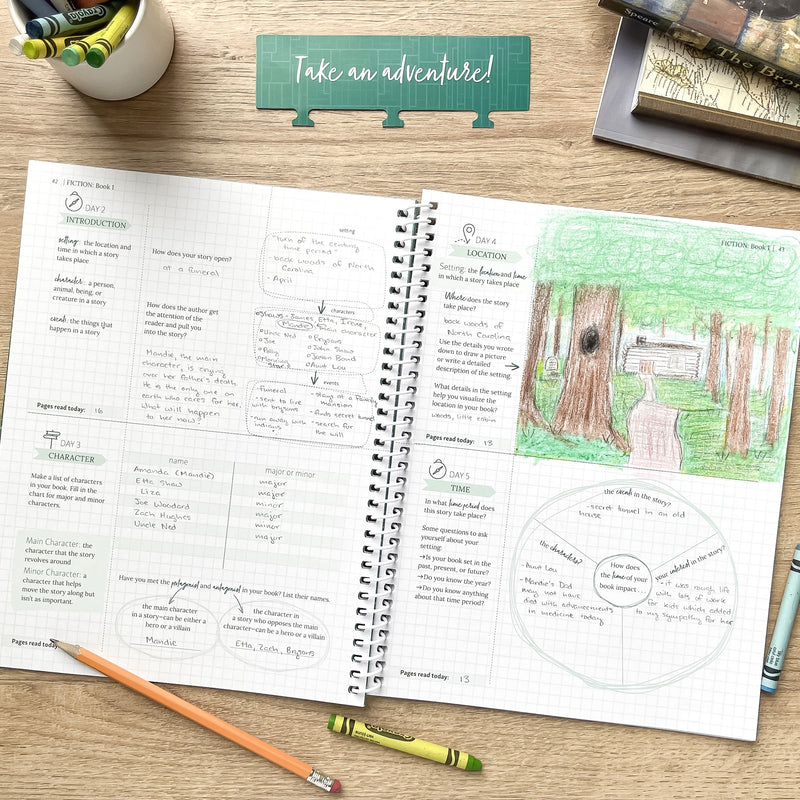 Crayola
Take an adventure!
Speare
The Bron
42 | FICTION: Book 1
DAY 2
INTRODUCTION
setting: the location and
time in which a story
takes place
character: a person,
animal, being, or
creature in a story
event: the things that
happen in a story
Pages read today: 16
How does your story open?
at a funeral
How does the author get
the attention of the
reader and pull you
into the story?
Mandie, the main
character, is crying
over her father's death.
He is the only one on
earth who cares for her.
What will happen
to her now?
setting
-turn of the century
time period
-back woods of North
Carolina
-April
characters
Etta, Irene,
Mandie main character
Uncle Ned
Joe
Polly
Brysons
John Shaw
Jason Bond
Aunt Lou
events
-funeral
-sent to live
with brysons
-run away with
indians
-stay at a
mansion
-finds secret tunnel
-search for
the will
DAY 3
CHARACTER
Make a list of characters
in your book. Fill in the
chart for major and minor
characters.
Main Character: the
character that the story
revolves around
Minor Character: a
character that helps
move the story along but
isn't as important.
Pages read today
name
major or minor
Amanda (Mandie) major
Etta Shaw major
Liza minor
Joe Woodard major
Zach Hughes minor
Uncle Ned major
Have you met the protagonist and antagonist in your book? List their names.
the main character
in a story–can be either a
hero or a villain
Mandie
the character in
a story who opposes the main
character–can be a hero or a villain
Etta, Zach, Brysons
DAY 4
LOCATION
Setting: the location and time
in which a story takes place
Where does the story
take place?
back woods of
North Carolina
Use the details you wrote
down to draw a picture
or write a detailed
description of the setting.
What details in the setting
help you visualize the
location in your book?
woods, little cabin
Pages read today: 13
FICTION: Book 1 | 43
DAY 5
TIME
In what time period does
this story take place?
Some questions to ask
yourself about your
setting:
→Is your book set in the
past, present, or future?
→Do you know the year?
→Do you know anything
about that time period?
Pages read today: 13
the events in the story?
-secret tunnel in an old
house
the characters?
-Aunt Lou
-Mandie's Dad
may not have
died with advancements
in medicine today
How does
the time of your
book impact...
your interest in the story?
-it was rough life
with lots of work
for kids which added
to my sympathy for her